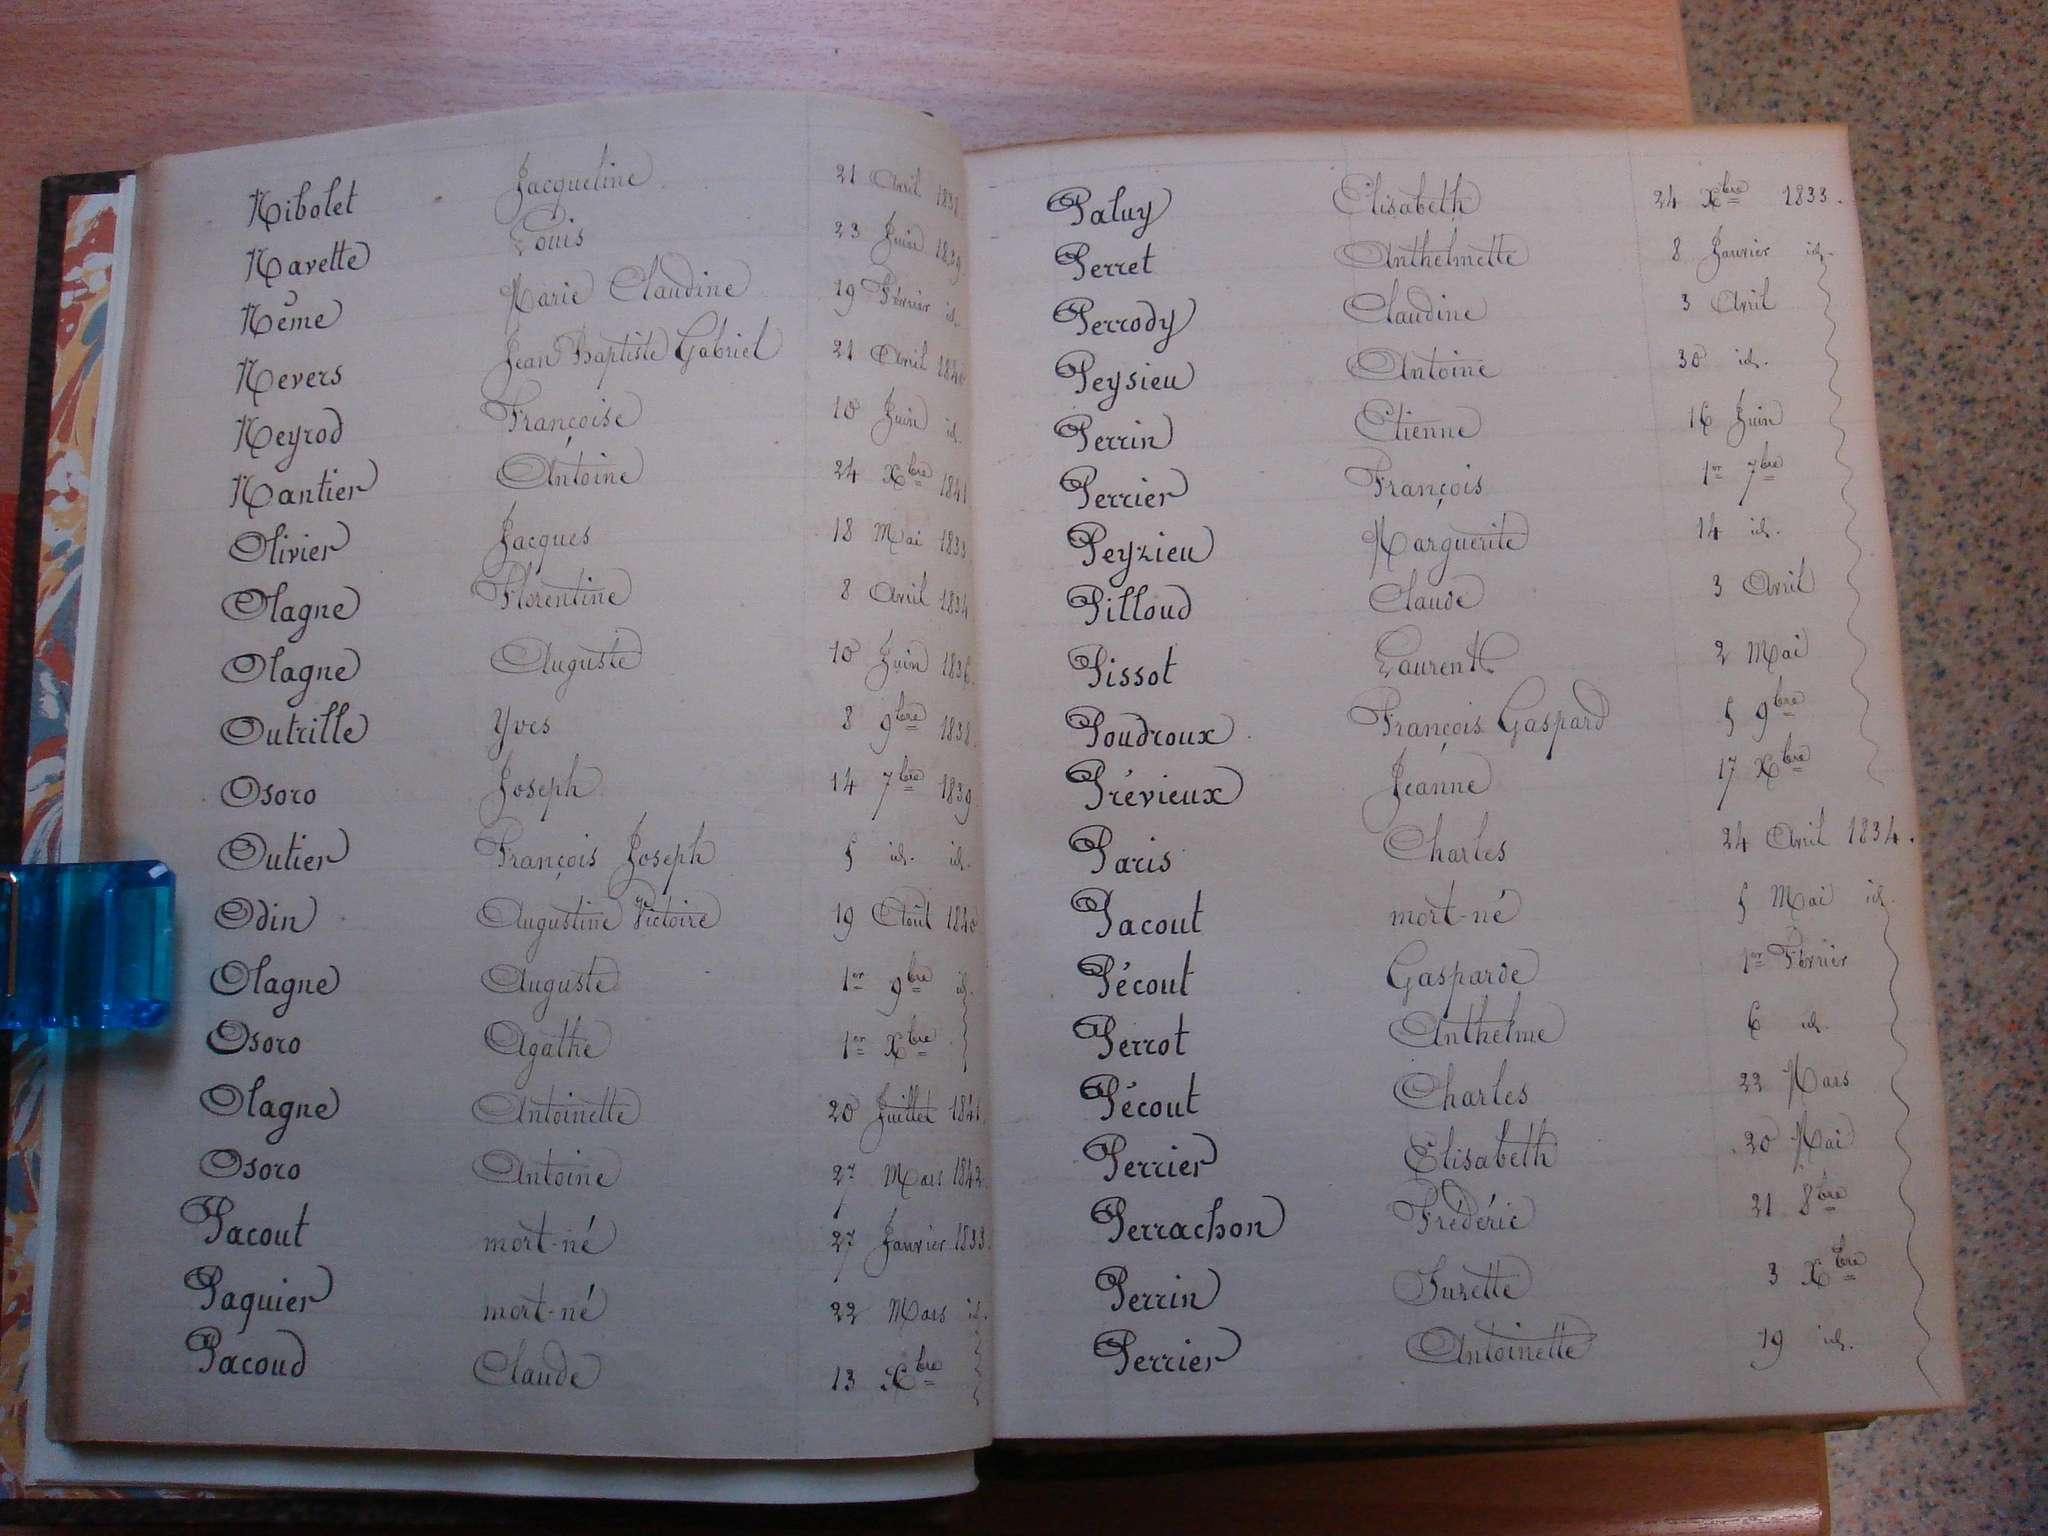 Nibolet Jacqueline 21 Avril
Navette Louis 23 Juin 1839
Nême Marie Claudine 19 Février id.
Nevers Jean Baptiste Gabriel 21 Avril 1840
Neyrod Françoise 10 Juin id.
Nantier Antoine 24 Xbre 1841
Olivier Jacques 18 Mai 1833
Olagne Florentine 8 Avril 1834
Olagne Auguste 10 Juin 1836
Outrille Yves 8 9bre 1838.
Osoro Joseph 14 7bre 1839
Outier François Joseph 5 id. id.
Odin Augustine Victoire 19 Août 1840
Olagne Auguste 1er 9bre id.
Osoro Agathe 1er Xbre
Olagne Antoinette 20 Juillet 1841.
Osoro Antoine 27 Mars 1842
Pacout mort-né 27 Janvier 1833.
Paquier mort-né 22 Mars id.
Pacoud Claude 13 Xbre
Paluy Elisabeth 24 Xbre 1833.
Perret Anthelmette 8 Janvier id.
Perrody Claudine 3 Avril
Peysieu Antoine 30 id.
Perrin Etienne 16 Juin
Perrier François 1er 7bre
Peyzieu Marguerite 14 id.
Pilloud Claude 3 Avril
Pissot Laurent 2 Mai
Poudroux François Gaspard 5 9bre
Prévieux Jeanne 17 Xbre
Paris Charles 24 Avril 1834.
Pacout mort-né 5 Mai id.
Pécout Gasparde 1er Février
Perrot Anthelme 6 id.
Pécout Charles 22 Mars
Perrier Elisabeth 20 Mai
Perrachon Frédéric 21 8bre
Perrin Suzette 3 Xbre
Perrier Antoinette 19 id.